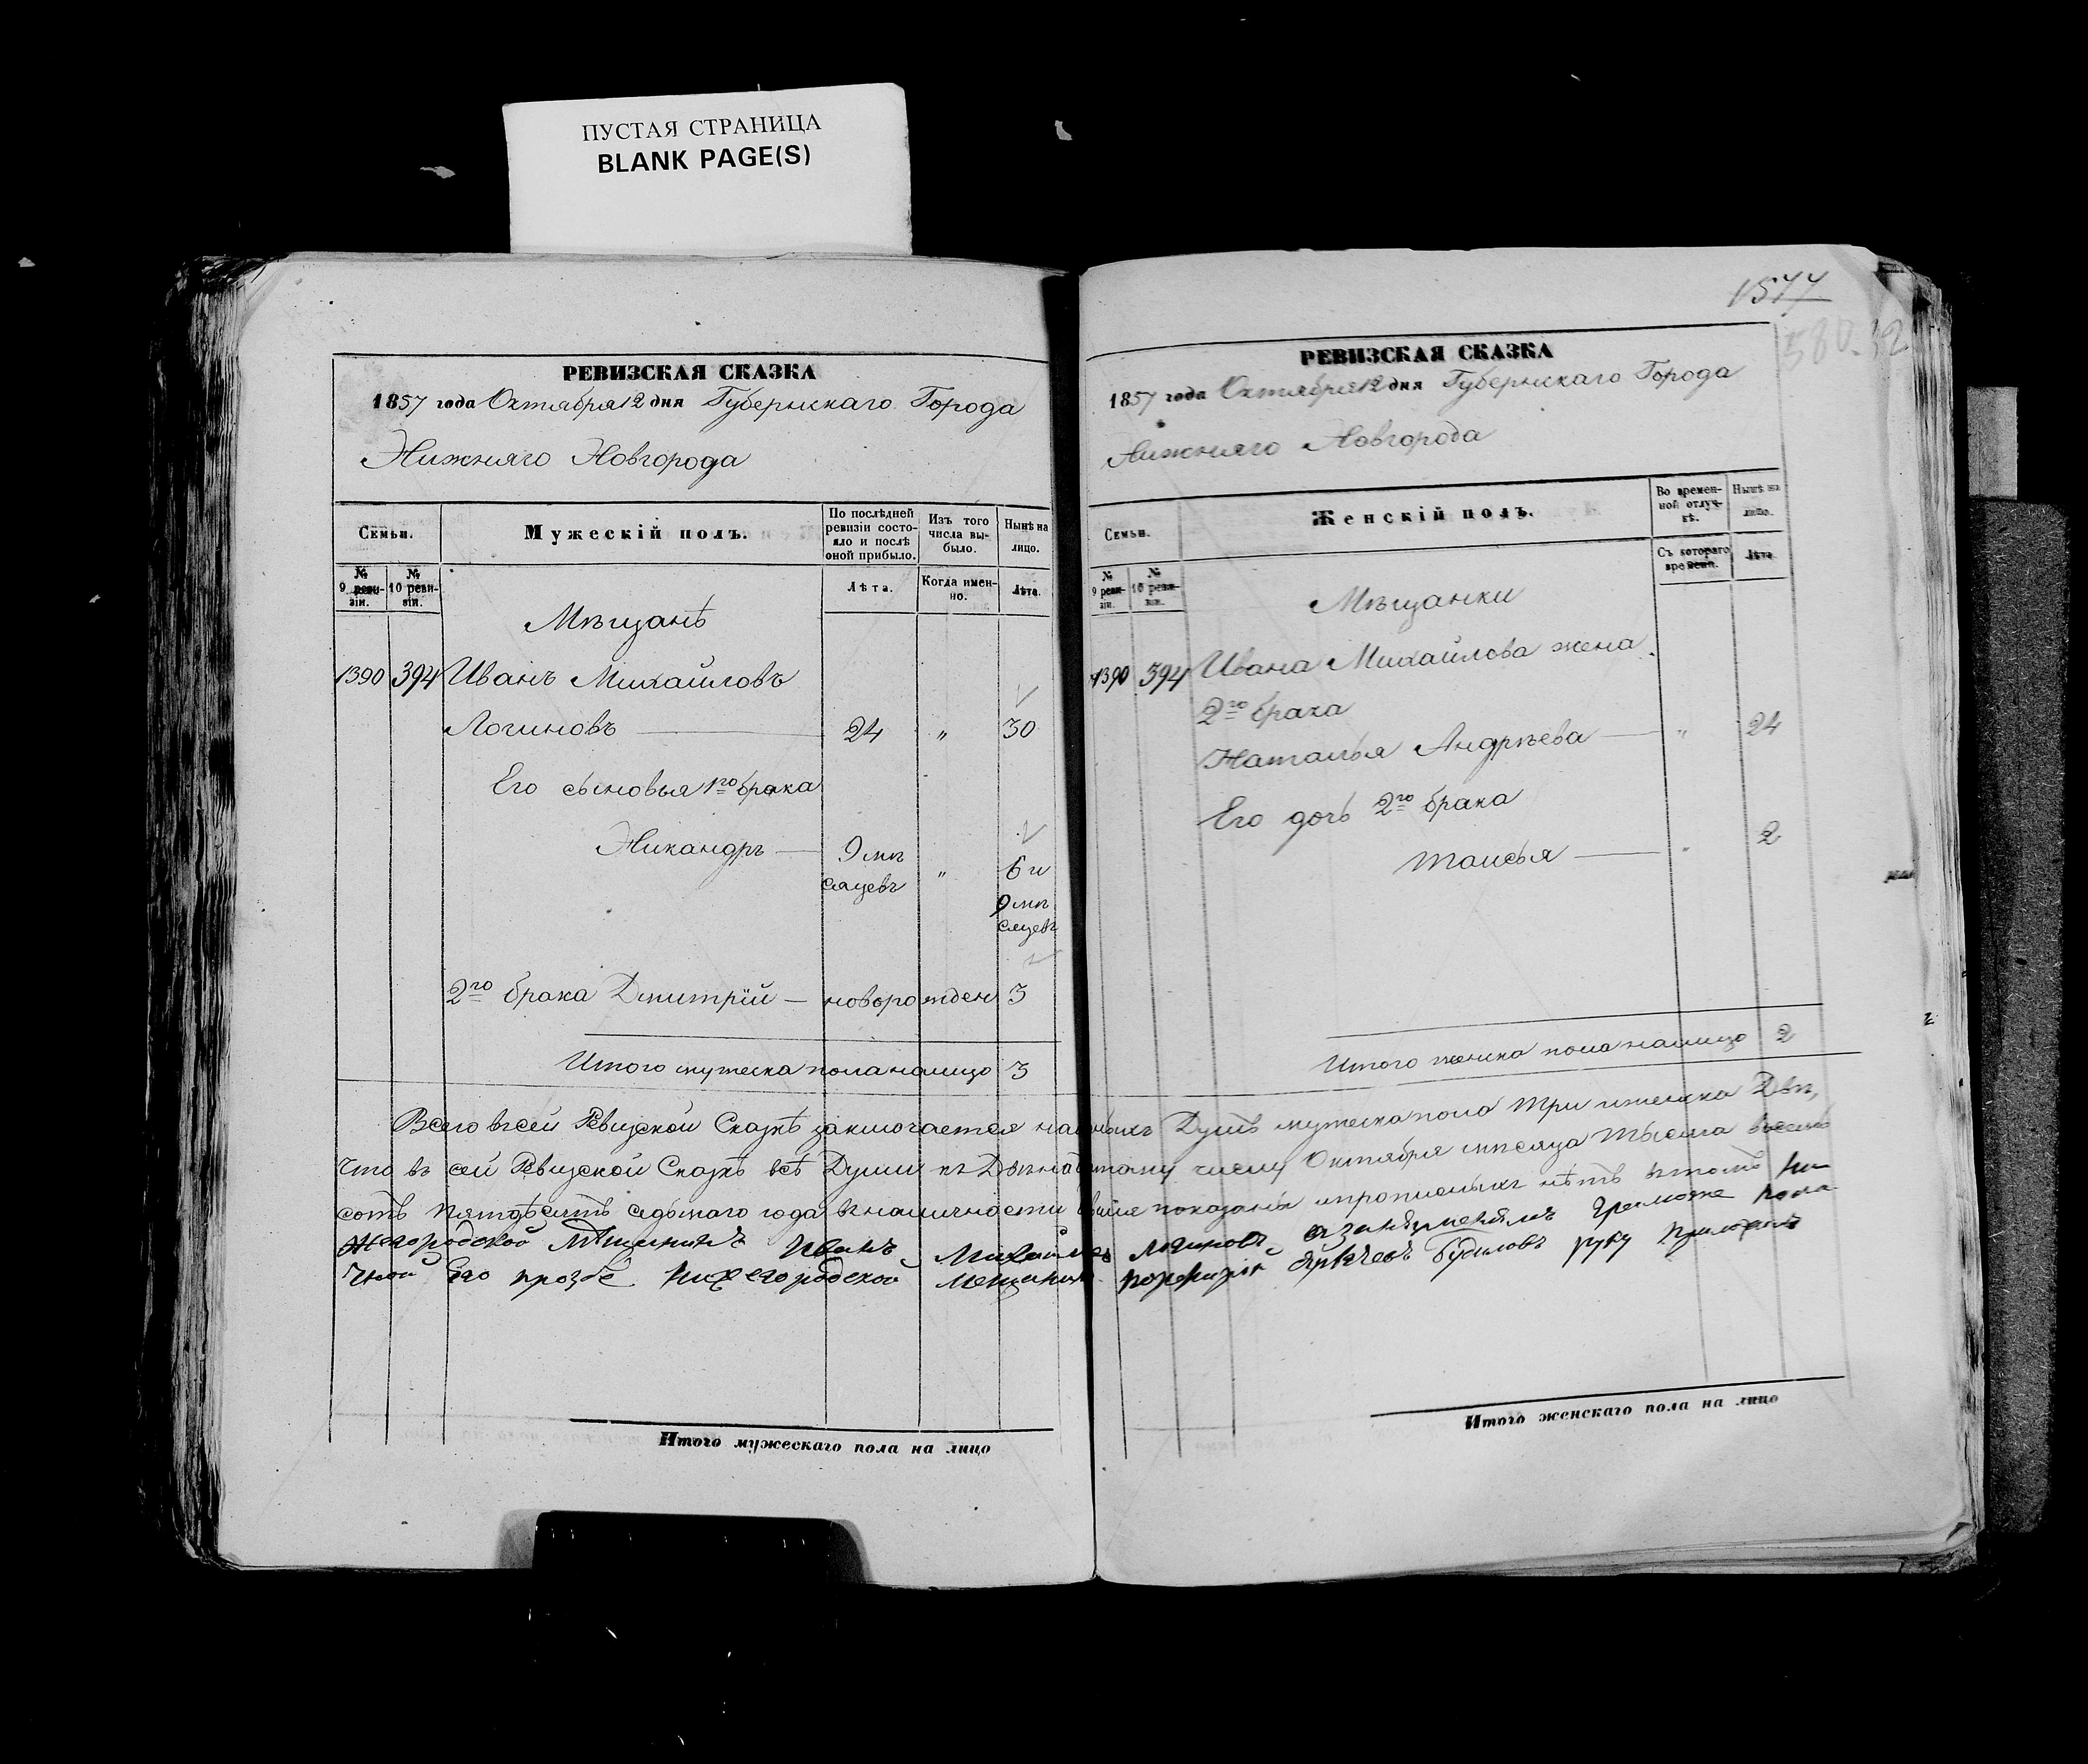 ПУСТАЯ СТРАНИЦА
BLANK PAGE(S)
РЕВИЗСКАЯ СКАЗКА
1857 года Октября 12 дня Губернскаго Города
Нижняго Новгорода
Семьи.
Мужескій полъ.
По послѣдней ревизіи состояло и послѣ оной прибыло.
Изъ того числа выбыло.
Нынѣ на лицо.
№ 9 ревизіи.
№ 10 ревизіи.
Лѣта.
Когда именно.
Лѣта.
Мѣщанѣ
1390 394 Иванъ Михайловъ
Логиновъ — 24 „ 30
Его сыновья 1го брака
Никандръ — 9 мѣсяцевъ „ 6 и 9 мѣсяцевъ
2го брака Дмитрій — новорожден 3
Итого мужеска пола налицо 3
Итого мужескаго пола на лицо
1577
580.
РЕВИЗСКАЯ СКАЗКА
1857 года Октября 12 дня Губернскаго Города
Нижняго Новгорода
Семьи.
Женскій полъ.
Во временной отлучкѣ.
Нынѣ на лицо.
№ 9 ревизіи.
№ 10 ревизіи.
Съ котораго времени.
Лѣта.
Мѣщанки
1390 394 Ивана Михайлова жена
2го брака
Наталья Андрѣева — „ 24
Его дочь 2го брака
Таисья — „ 2
Итого женска пола налицо 2
Всего въ сей Ревизской Сказкѣ заключается наличныхъ Душъ мужеска пола три и женска Двѣ,
Что въ сей Ревизской Сказкѣ всѣ Души къ Двѣнадцатому числу Октября мѣсяца тысяча восемь
сотъ пятдѣсятъ седьмаго года въ наличности бывшіе показаны и прописныхъ нѣтъ въ томъ Ни
жегородской Мѣщанинъ Иванъ Михайловъ Логиновъ а за неумениемъ Грамоте пола
чной Его прозбе Нижегородской Мещанинъ Будиловъ руку приложилъ
Итого женскаго пола на лицо